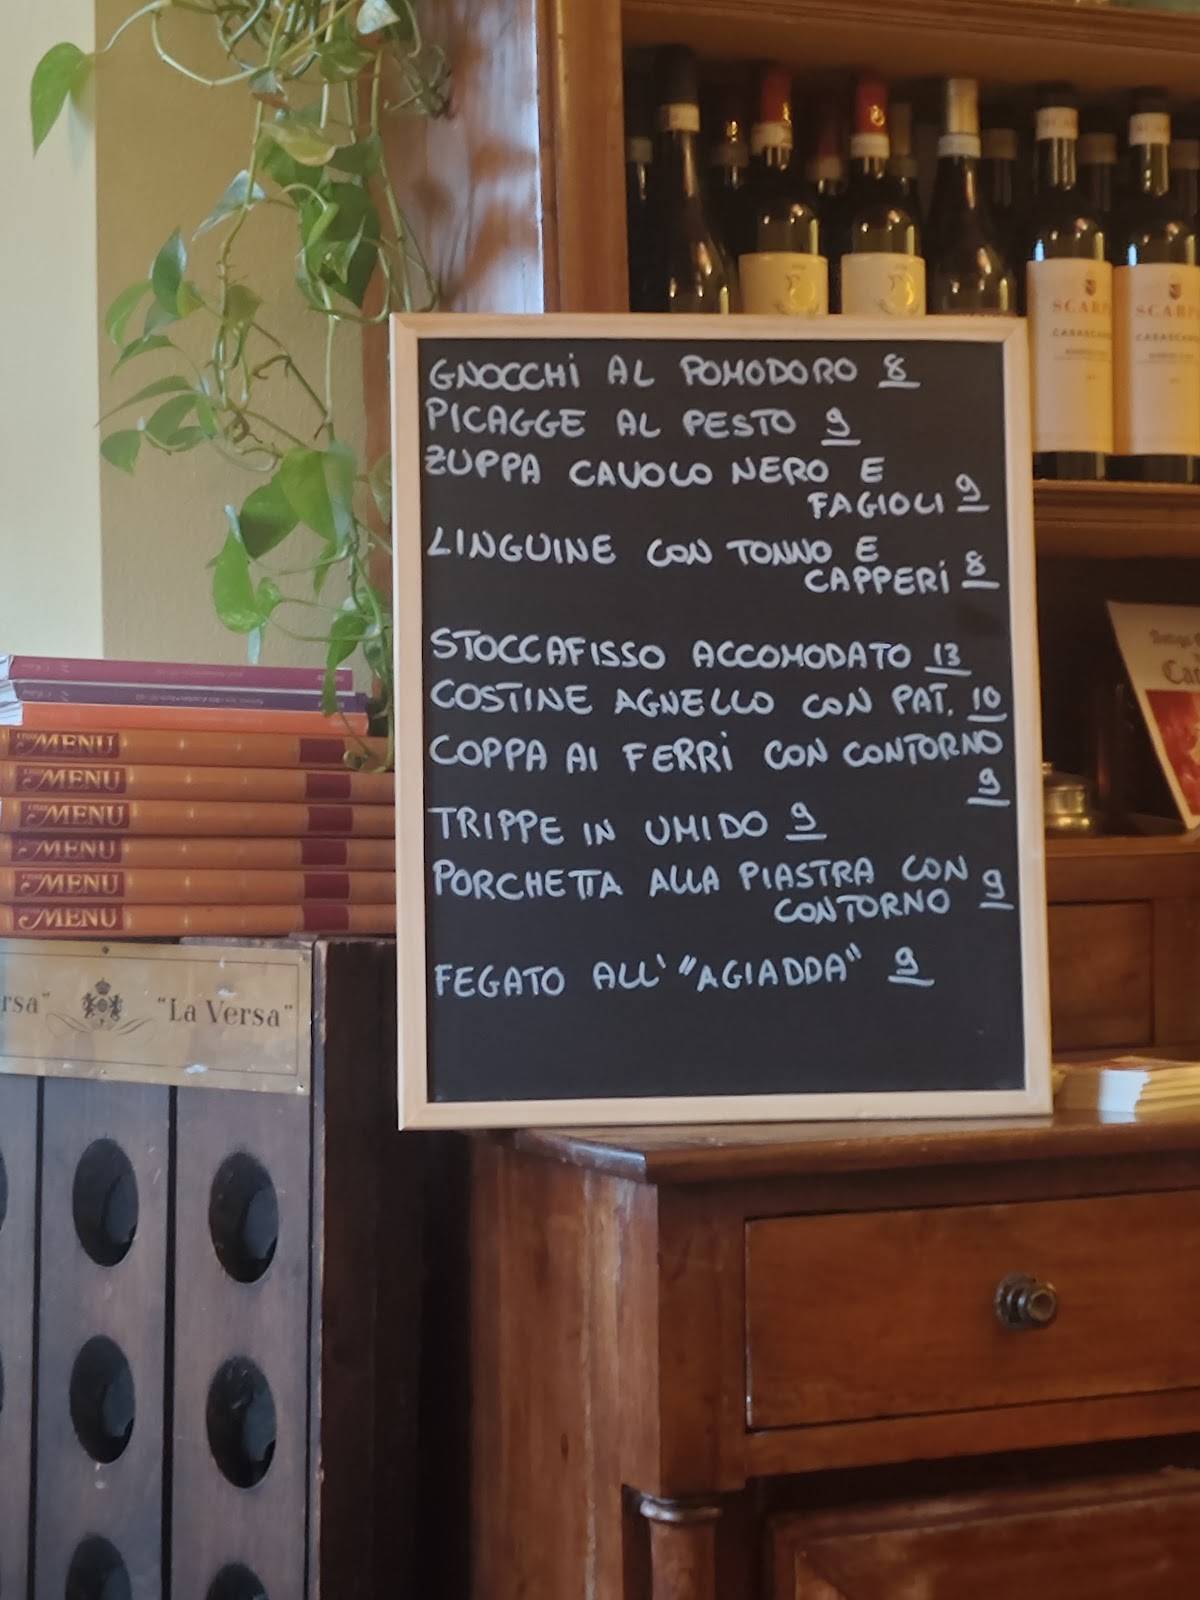 GNOCCHI AL POMODORO 8
PICAGGE AL PESTO 9
ZUPPA CAVOLO NERO E
FAGIOLI 9
LINGUINE CON TONNO E
CAPPERI 8
STOCCAFISSO ACCOMODATO 13
COSTINE AGNELLO CON PAT. 10
COPPA AI FERRI CON CONTORNO
9
TRIPPE IN UMIDO 9
PORCHETTA ALLA PIASTRA CON
CONTORNO 9
FEGATO ALL' "AGIADDA" 9
MENU
MENU
MENU
MENU
MENU
MENU
rsa" "La Versa"
SCARP
SCARP